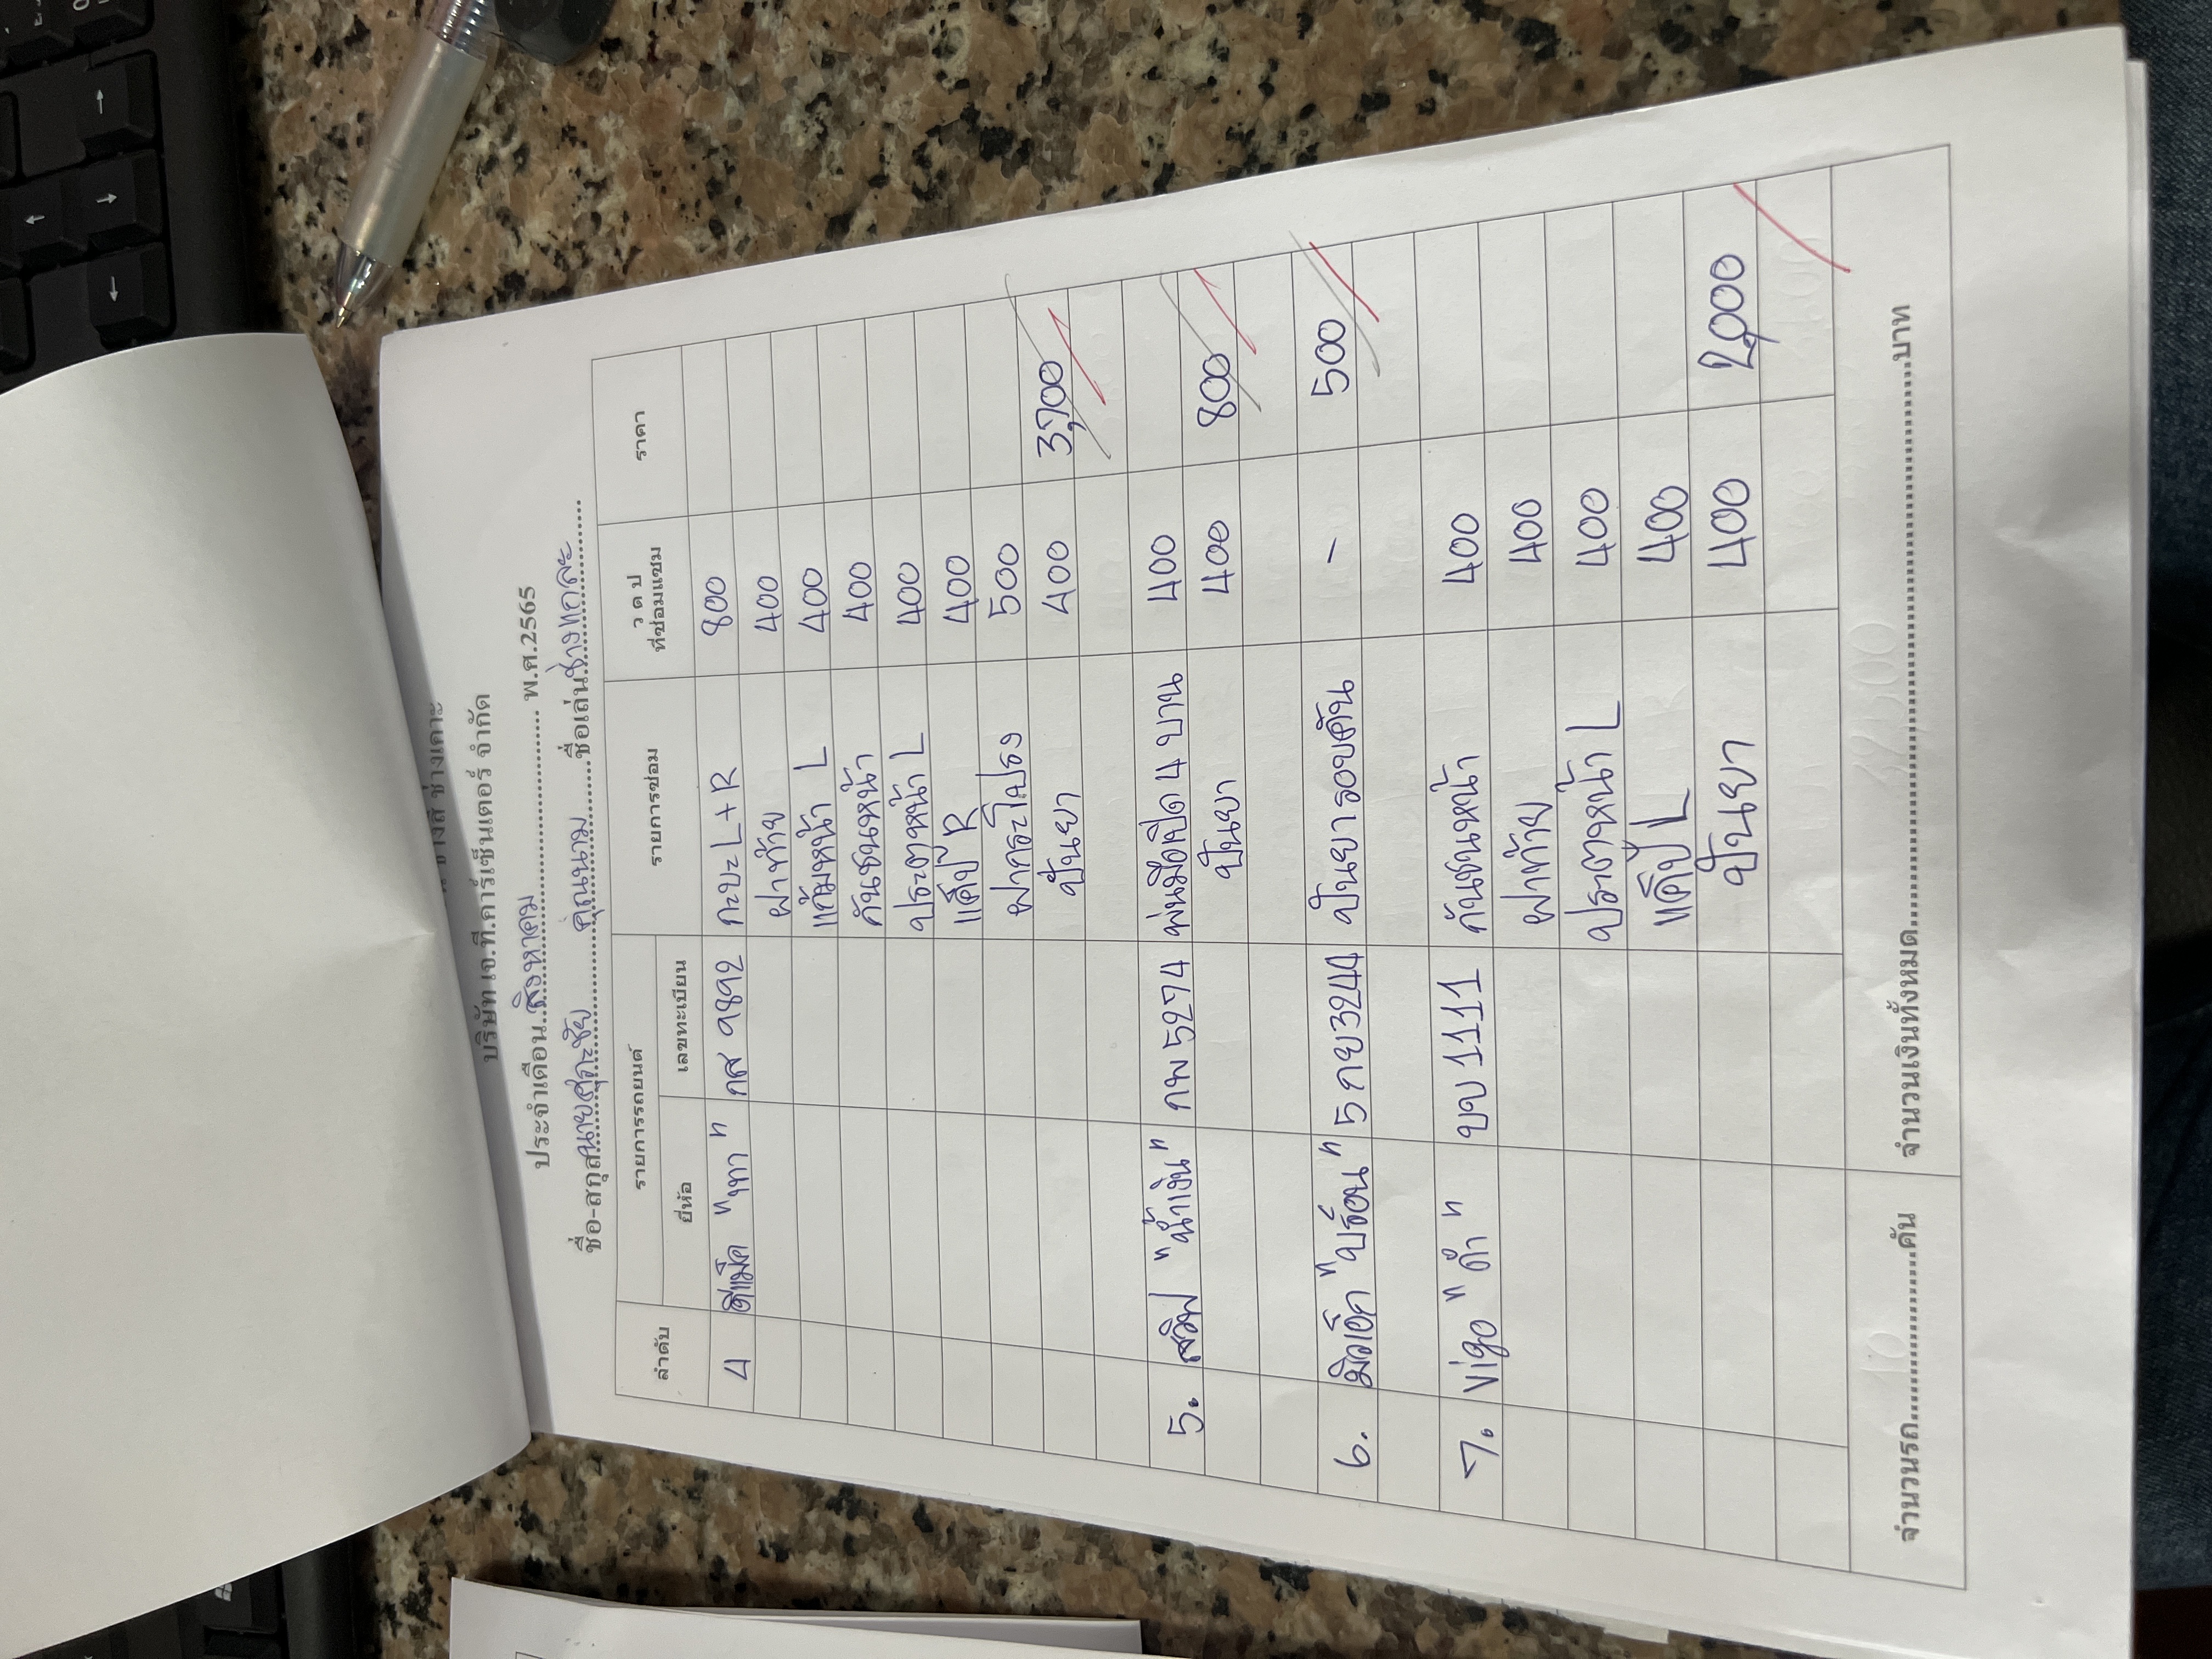 ช่างสี ช่างเคาะ
บริษัท เจ.ที.คาร์เซ็นเตอร์ จำกัด
ประจำเดือน..สิงหาคม.......... พ.ศ.2565
ชื่อ-สกุล นายสุระชัย คุณนาม ชื่อเล่น ช่างแกละ
ลำดับ รายการรถยนต์ รายการซ่อม ว ด ป ที่ซ่อมแซม ราคา
ยี่ห้อ เลขทะเบียน
4 ดีแม็ค "เทา" กส 9892 กะบะ L+R 800
ฝาท้าย 400
แก้มหน้า L 400
กันชนหน้า 400
ประตูหน้า L 400
แค็ป R 400
ฝากระโปรง 500
ปั่นยา 400 3,700
5. สวิฟ "น้ำเงิน" กพ 5274 พ่นมือเปิด 4 บาน 400
ปั่นยา 400 800
6. มิลเด็ค "บรอน" 5 กย 3244 ปั่นยารอบคัน - 500
7. Vigo "ดำ" บบ 1111 กันชนหน้า 400
ฝาท้าย 400
ประตูหน้า L 400
แค็ป L 400
ปั่นยา 400 2,000
จำนวนรถ..........คัน จำนวนเงินทั้งหมด..........บาท